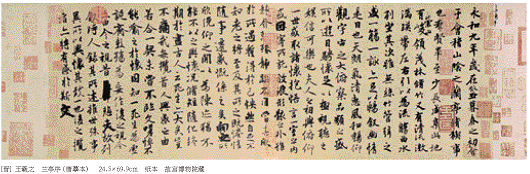 永和九年歲在癸丑暮春之初會
于會稽山陰之蘭亭脩禊事
也群賢畢至少長咸集此地
有崇山峻領茂林脩竹又有清流激
湍暎帶左右引以為流觴曲水
列坐其次雖無絲竹管弦之
盛一觴一詠亦足以暢敘幽情
是日也天朗氣清惠風和暢仰
觀宇宙之大俯察品類之盛
所以遊目騁懷足以極視聽之
娛信可樂也夫人之相與俯仰
一世或取諸懷抱悟言一室之內
或因寄所託放浪形骸之外雖
趣舍萬殊靜躁不同當其欣
於所遇暫得於己怏然自足不
知老之將至及其所之既惓情
隨事遷感慨係之矣向之所
欣俛仰之閒以為陳迹猶不
能不以之興懷況脩短隨化終
期於盡古人云死生亦大矣豈
不痛哉每攬昔人興感之由
若合一契未嘗不臨文嗟悼不
能喻之於懷固知一死生為虛
誕齊彭殤為妄作後之視今
亦由今之視昔悲夫故列
敘時人錄其所述雖世殊事
異所以興懷其致一也後之攬
者亦將有感於斯文
[晋] 王羲之 兰亭序(唐摹本) 24.5×69.9cm 纸本 故宫博物院藏